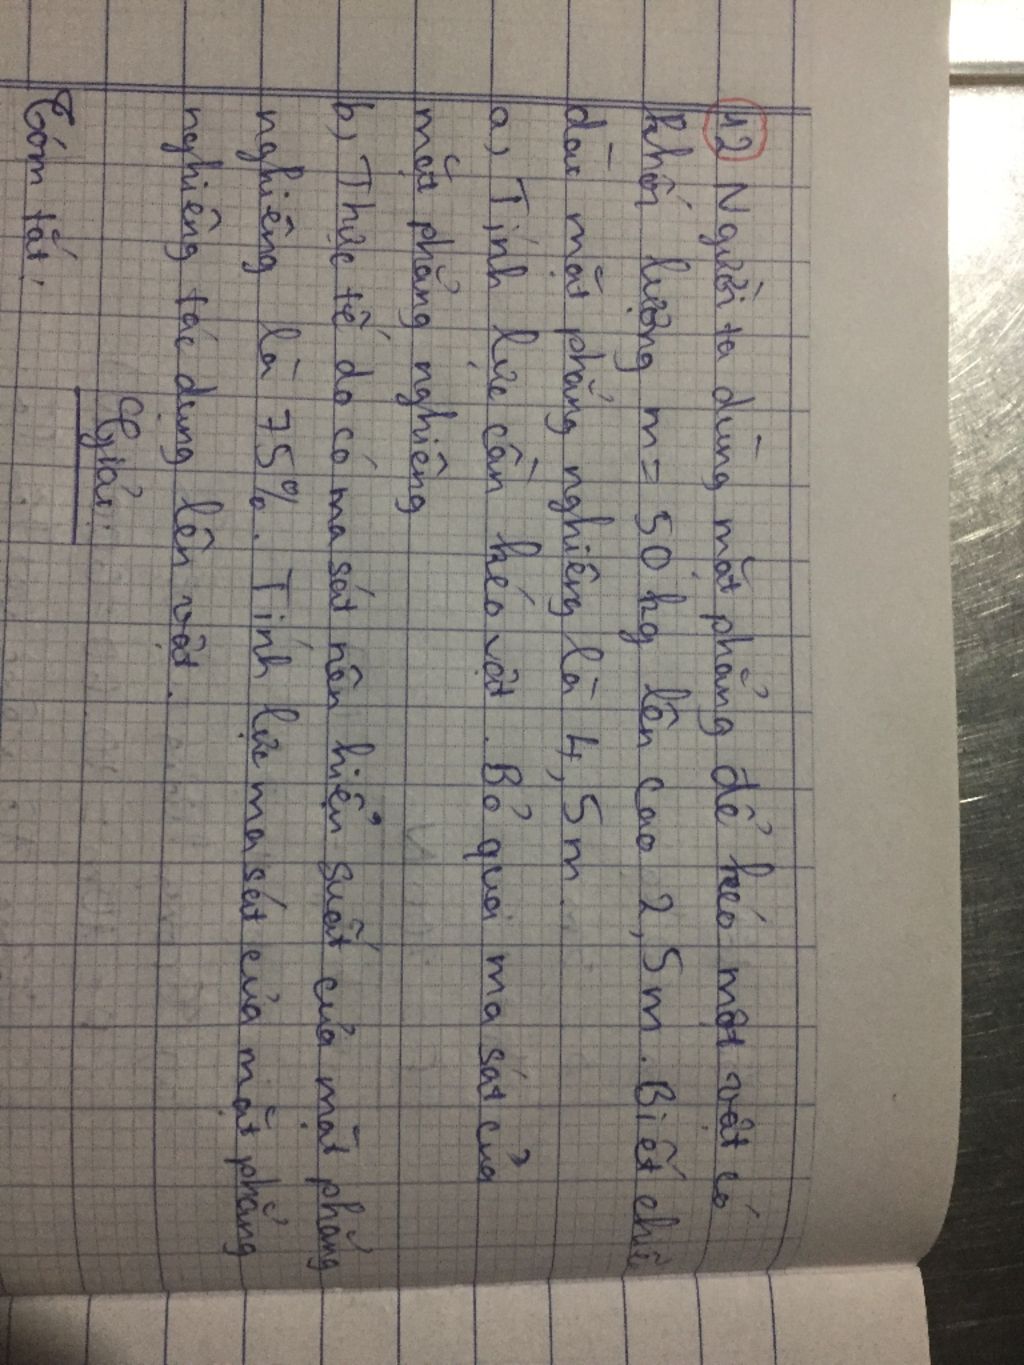 12 Người ta dùng mặt phẳng để kéo một vật có
khối lượng m = 50 kg lên cao 2,5m. Biết chiều
dài mặt phẳng nghiêng là 4,5m
a, Tính lực cần kéo vật. Bỏ qua ma sát của
mặt phẳng nghiêng
b, Thực tế do có ma sát nên hiển suất của mặt phẳng
nghiêng là 75%. Tính lực ma sát của mặt phẳng
nghiêng tác dụng lên vật.
Giải:
Tóm tắt: